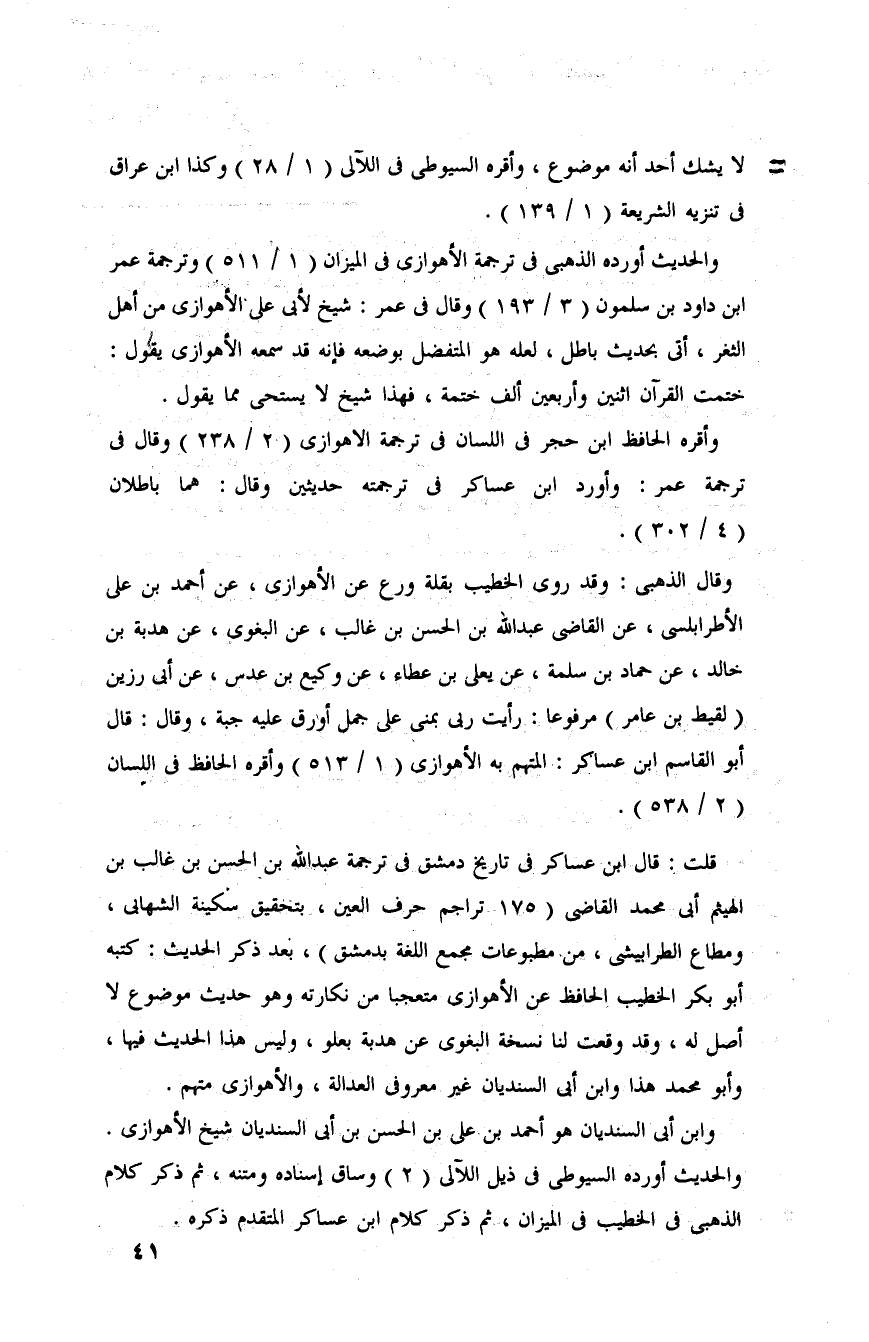 = لا يشك أحد أنه موضوع ، وأقره السيوطى فى اللآلى ( ١ / ٢٨ ) وكذا ابن عراق
فى تنزيه الشريعة ( ١ / ١٣٩ ) .
والحديث أورده الذهبى فى ترجمة الأهوازى فى الميزان ( ١ / ٥١١ ) وترجمة عمر
ابن داود بن سلمون ( ٣ / ١٩٣ ) وقال فى عمر : شيخ لأبى على الأهوازى من أهل
الثغر ، أتى بحديث باطل ، لعله هو المتفضل بوضعه فإنه قد سمعه الأهوازى يقول :
ختمت القرآن اثنين وأربعين ألف ختمة ، فهذا شيخ لا يستحى مما يقول .
وأقره الحافظ ابن حجر فى اللسان فى ترجمة الاهوازى ( ٢ / ٢٣٨ ) وقال فى
ترجمة عمر : وأورد ابن عساكر فى ترجمته حديثين وقال : هما باطلان
( ٤ / ٣٠٢ ) .
وقال الذهبى : وقد روى الخطيب بقلة ورع عن الأهوازى ، عن أحمد بن على
الأطرابلسى ، عن القاضى عبدالله بن الحسن بن غالب ، عن البغوى ، عن هدبة بن
خالد ، عن حماد بن سلمة ، عن يعلى بن عطاء ، عن وكيع بن عدس ، عن أبى رزين
( لقيط بن عامر ) مرفوعا : رأيت ربى بمنى على جمل أورق عليه جبة ، وقال : قال
أبو القاسم ابن عساكر : المتهم به الأهوازى ( ١ / ٥١٣ ) وأقره الحافظ فى اللسان
( ٢ / ٥٣٨ ) .
قلت : قال ابن عساكر فى تاريخ دمشق فى ترجمة عبدالله بن الحسن بن غالب بن
الهيثم أبى محمد القاضى ( ١٧٥ تراجم حرف العين ، بتحقيق سكينة الشهابى ،
ومطاع الطرابيشى ، من مطبوعات مجمع اللغة بدمشق ) ، بعد ذكر الحديث : كتبه
أبو بكر الخطيب الحافظ عن الأهوازى متعجبا من نكارته وهو حديث موضوع لا
أصل له ، وقد وقعت لنا نسخة البغوى عن هدبة بعلو ، وليس هذا الحديث فيها ،
وأبو محمد هذا وابن أبى السنديان غير معروفى العدالة ، والأهوازى متهم .
وابن أبى السنديان هو أحمد بن على بن الحسن بن أبى السنديان شيخ الأهوازى .
والحديث أورده السيوطى فى ذيل اللآلى ( ٢ ) وساق إسناده ومتنه ، ثم ذكر كلام
الذهبى فى الخطيب فى الميزان ، ثم ذكر كلام ابن عساكر المتقدم ذكره .
٤١